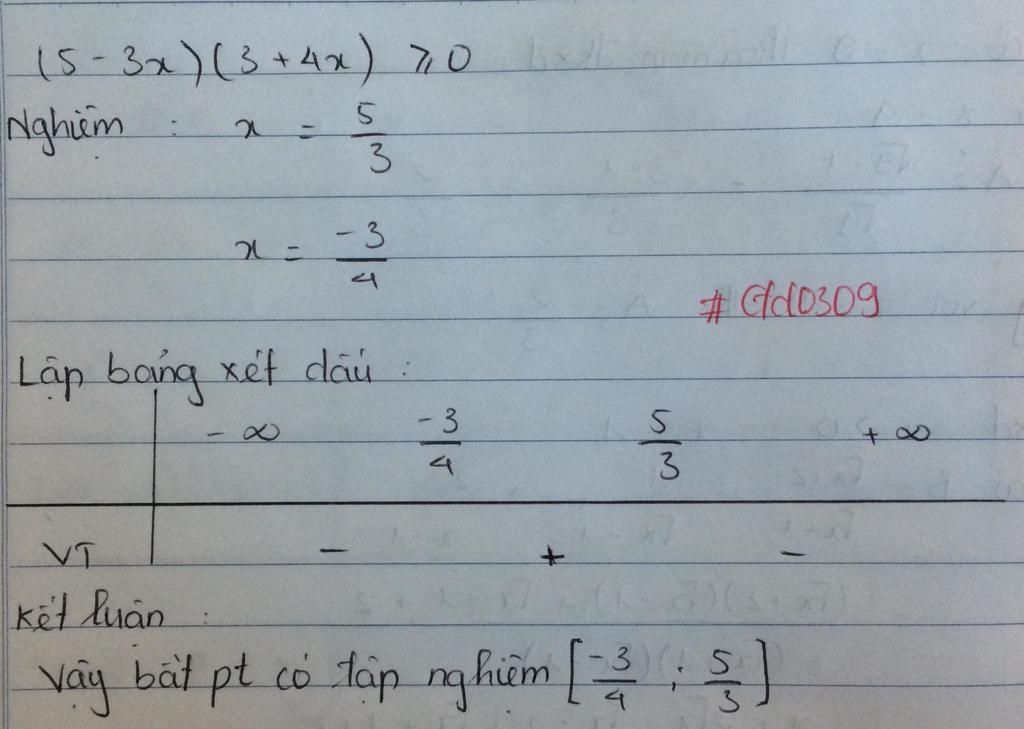 (5 - 3x)(3 + 4x) ⩾ 0
Nghiệm : x = 5/3
x = -3/4
# Gfd0309
Lập bảng xét dấu :
- ∞ -3/4 5/3 + ∞
VT - + -
Kết luận :
Vậy bất pt có tập nghiệm [-3/4 ; 5/3]